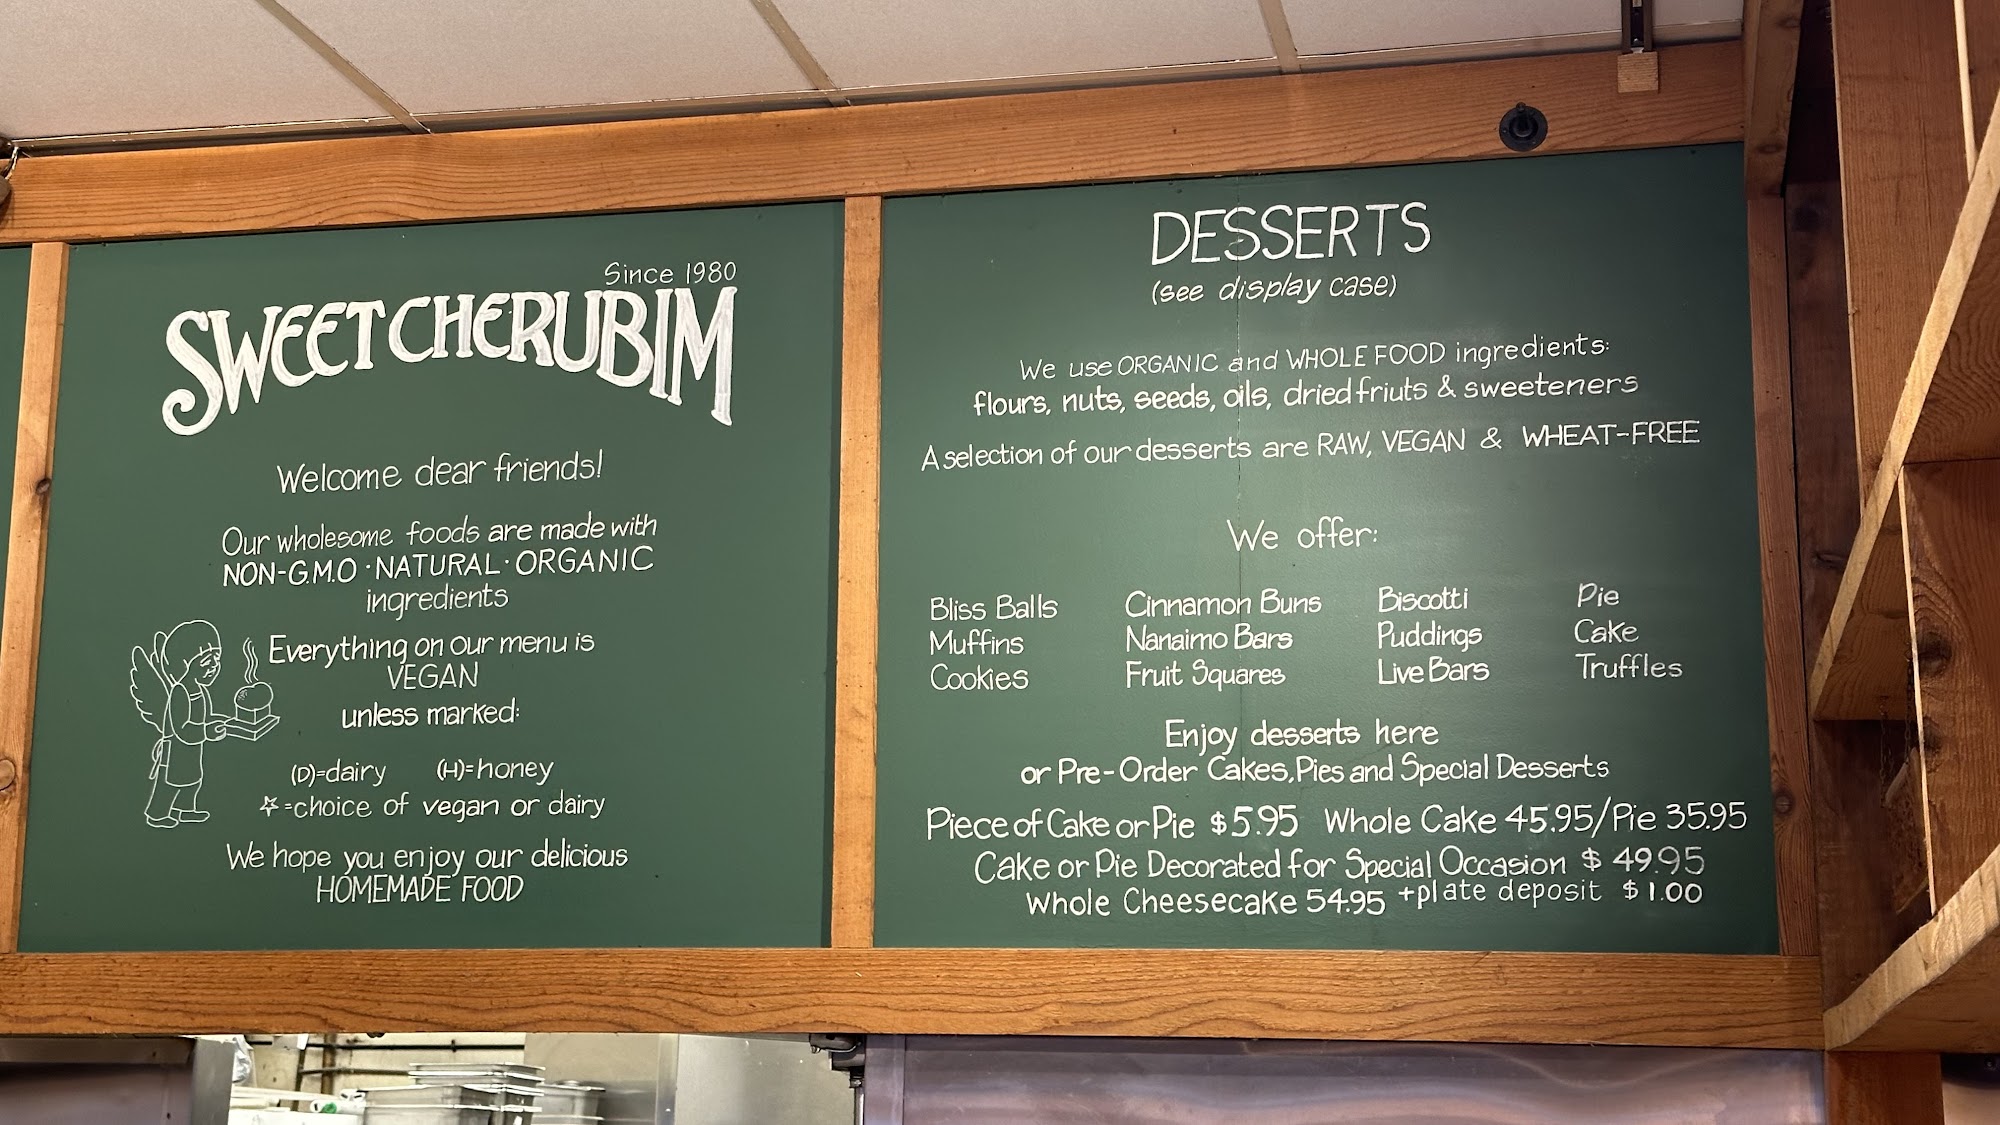 Since 1980
SWEET CHERUBIM
Welcome dear friends!
Our wholesome foods are made with
NON-G.M.O · NATURAL · ORGANIC
ingredients
Everything on our menu is
VEGAN
unless marked:
(D)=dairy (H)=honey
☆=choice of vegan or dairy
We hope you enjoy our delicious
HOMEMADE FOOD
DESSERTS
(see display case)
We use ORGANIC and WHOLE FOOD ingredients:
flours, nuts, seeds, oils, dried friuts & sweeteners
A selection of our desserts are RAW, VEGAN & WHEAT-FREE
We offer:
Bliss Balls Cinnamon Buns Biscotti Pie
Muffins Nanaimo Bars Puddings Cake
Cookies Fruit Squares Live Bars Truffles
Enjoy desserts here
or Pre-Order Cakes, Pies and Special Desserts
Piece of Cake or Pie $5.95 Whole Cake 45.95/Pie 35.95
Cake or Pie Decorated for Special Occasion $49.95
Whole Cheesecake 54.95 +plate deposit $1.00